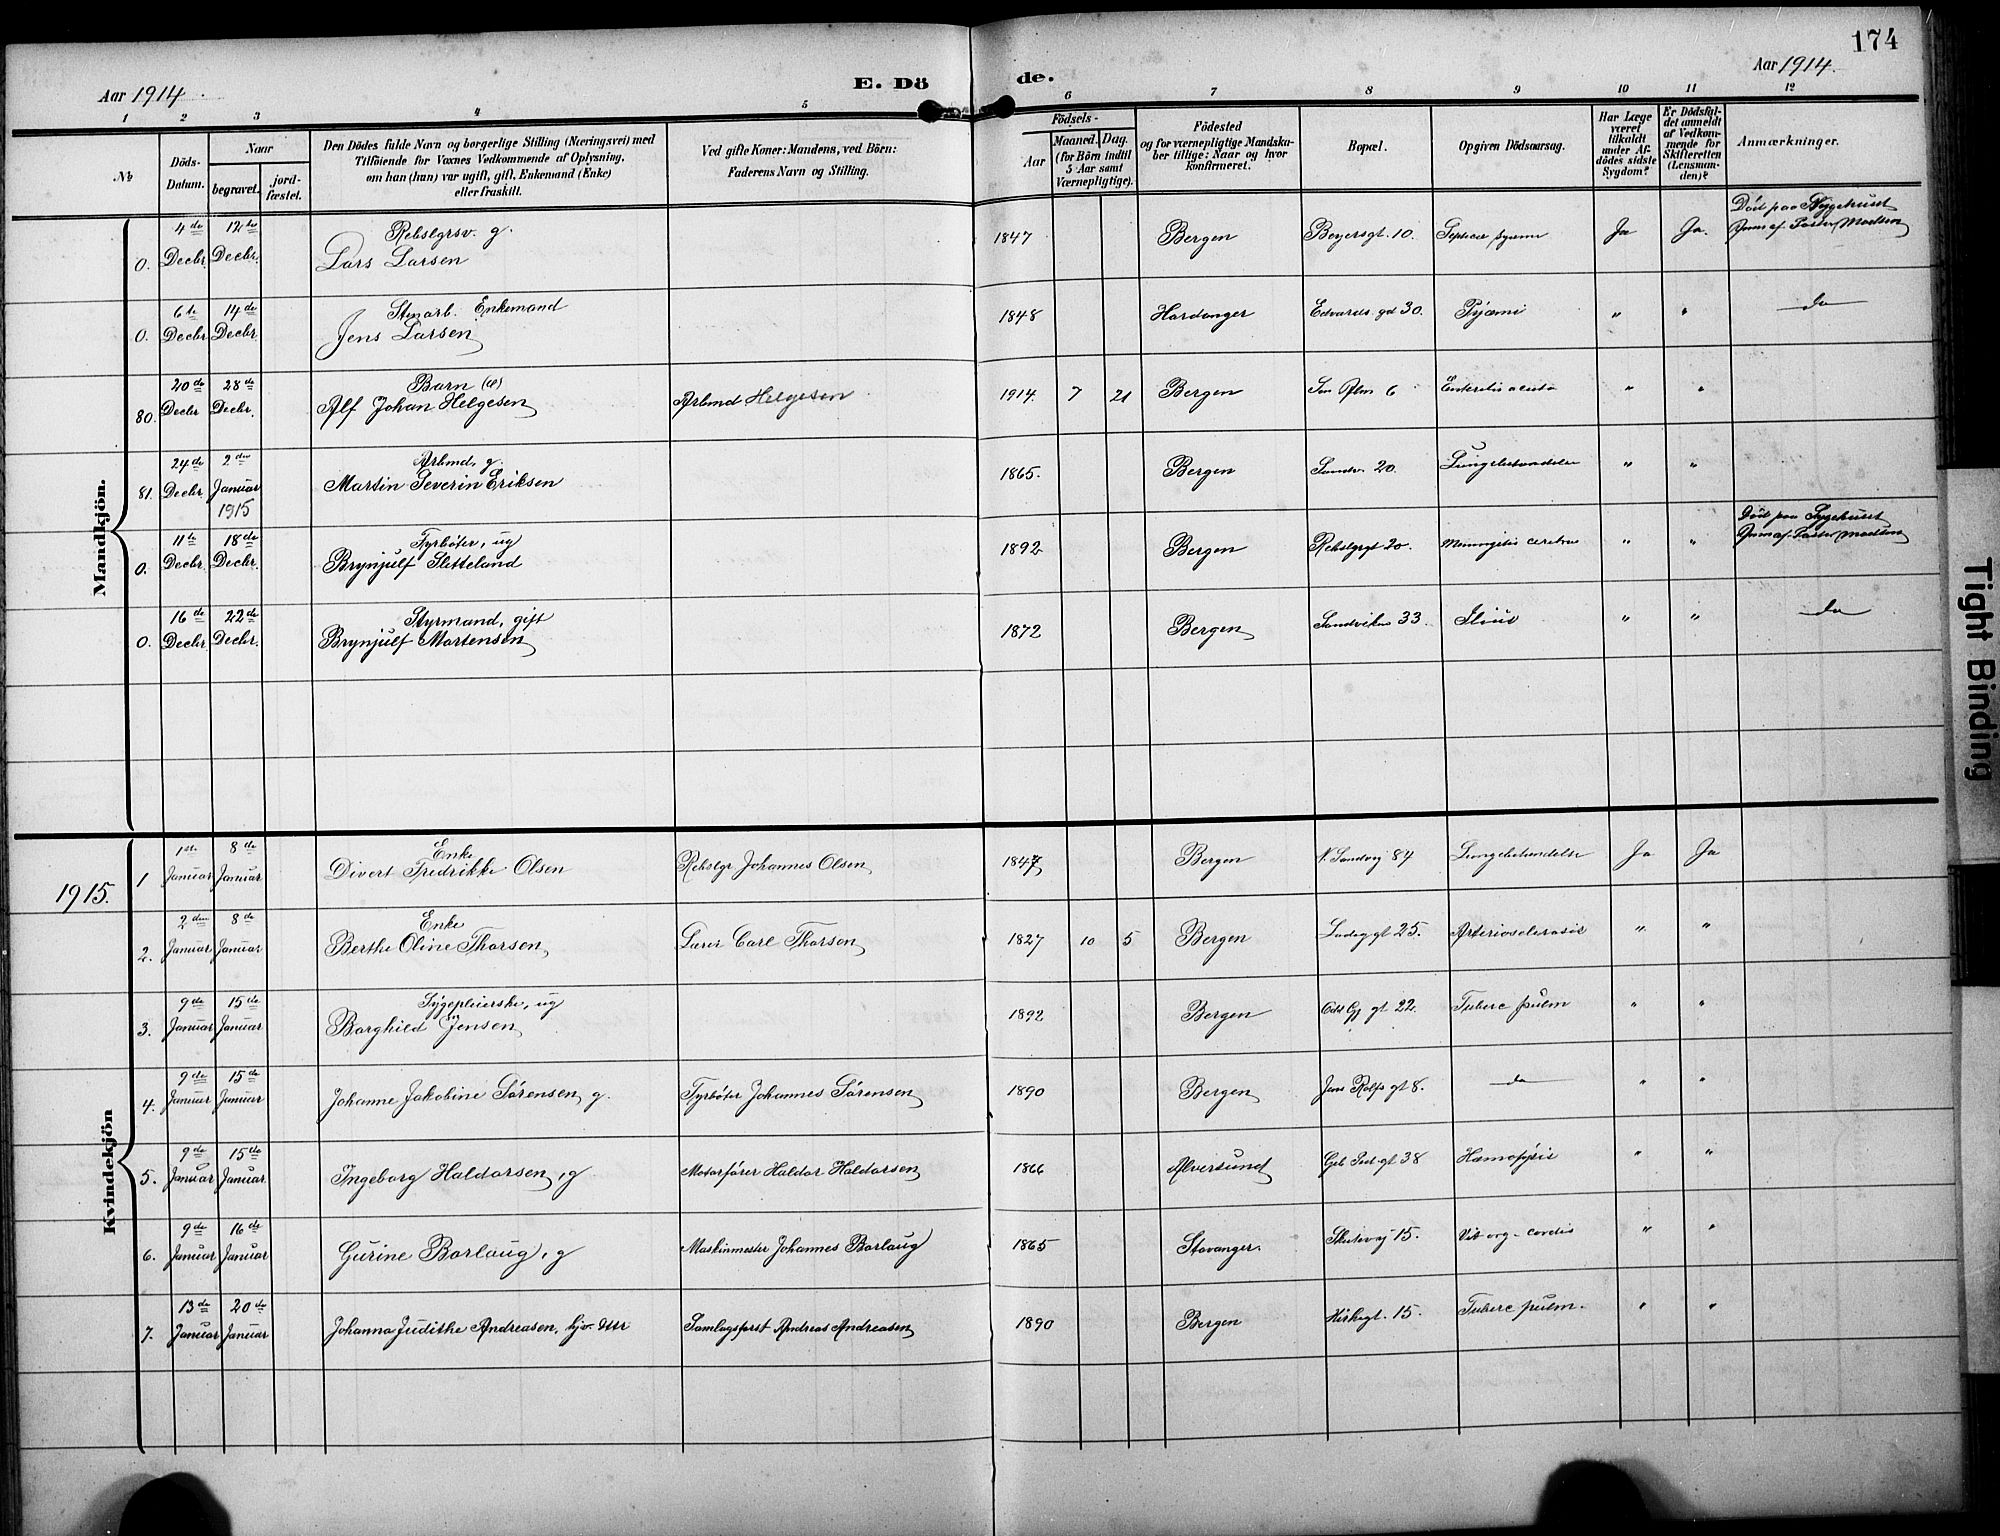 174
Aar 1914.
E. Dö
de.
Aar 1914.
1 2 3 4 5 6 7 8 9 10 11 12
№
Döds-Datum.
Naar
begravet.
jord-fæstet.
Den Dödes fulde Navn og borgerlige Stilling (Næringsvei) med
Tilföiende for Voxnes Vedkommende af Oplysning,
om han (hun) var ugift, gift, Enkemand (Enke)
eller fraskilt.
Ved gifte Koner: Mandens, ved Börn:
Faderens Navn og Stilling.
Födsels-
Aar
Maaned. Dag.
(for Börn indtil
5 Aar samt
Værnepligtige).
Födested
og for værnepligtige Mandska-
ber tillige: Naar og hvor
Konfirmeret.
Bopæl.
Opgiven Dödsaarsag.
Har Læge
været
tilkaldt
under Af-
dödes sidste
Sygdom?
Er Dödsfal-
det anmeldt
af Vedkom-
mende for
Skifteretten
(Lensman-
den)?
Anmærkninger.
Mandkjön.
0. 4de Decbr. 12te Decbr. Rebslgrsv. g. Lars Larsen 1847 Bergen Beyersgt. 10. Ja Ja. Död paa Sygehuset
0. 6te Decbr 14de Decbr. Stenarb. Enkemand Jens Larsen 1848 Hardanger Edvards. gd 30. Pyæmi " " do
80. 20de Decbr 28de Decbr. Barn (æ) Alf Johan Helgesen Arbmd Helgesen 1914. 7 21 Bergen 6 Enteritis acuta " "
81. 24de Decbr. 2den Januar 1915 Arbmd, g. Martin Severin Eriksen 1865. Bergen Sandv. 20. Lungebetændelse " "
0. 11te Decbr. 18de Decbr. Fyrböter, ug Brynjulf Sletteland 1892 Bergen Rebslgrgt 20. Meningitis cerebr " " Död paa Sygehuset
0. 16de Decbr. 22de Decbr. Styrmand, gift Brynjulf Mortensen 1872 Bergen Sandviksv 33. " " do
1915.
Kvindekjön
1 1ste Januar 8de Januar Enke Divert Fredrikke Olsen Rebslgr Johannes Olsen 1847 Bergen N. Sandvg 84 Lungebetændelse Ja Ja
2. 2den Januar 8de Januar Enke Berthe Oline Thorsen Lærer Carl Thorsen 1827 10 5 Bergen Ladeggt 25. Arteriosclerosis " "
3. 9de Januar 15de Januar Sygepleierske, ug Borghild Jensen 1892 Bergen gt 22. Tuberc pulm " "
4. 9de Januar 15de Januar Johanne Jakobine Sørensen, g. Fyrböter Johannes Sørensen 1890 Bergen Jens Rolfs gt 8. do " "
5. 9de Januar 15de Januar Ingeborg Haldorsen, g Motorfører Haldor Haldorsen 1866 Alversund gt 38 " "
6. 9de Januar 16de Januar Gurine Borlaug, g Maskinmester Johannes Borlaug 1865 Stavanger. Skutevg 15. Vit. org. cordis " "
7. 13de Januar 20de Januar Johanna Judithe Andreasen, hjv. dttr Samlagsbest Andreas Andreasen 1890 Bergen Kirkegt. 15. Tuberc pulm. " "
Tight Binding